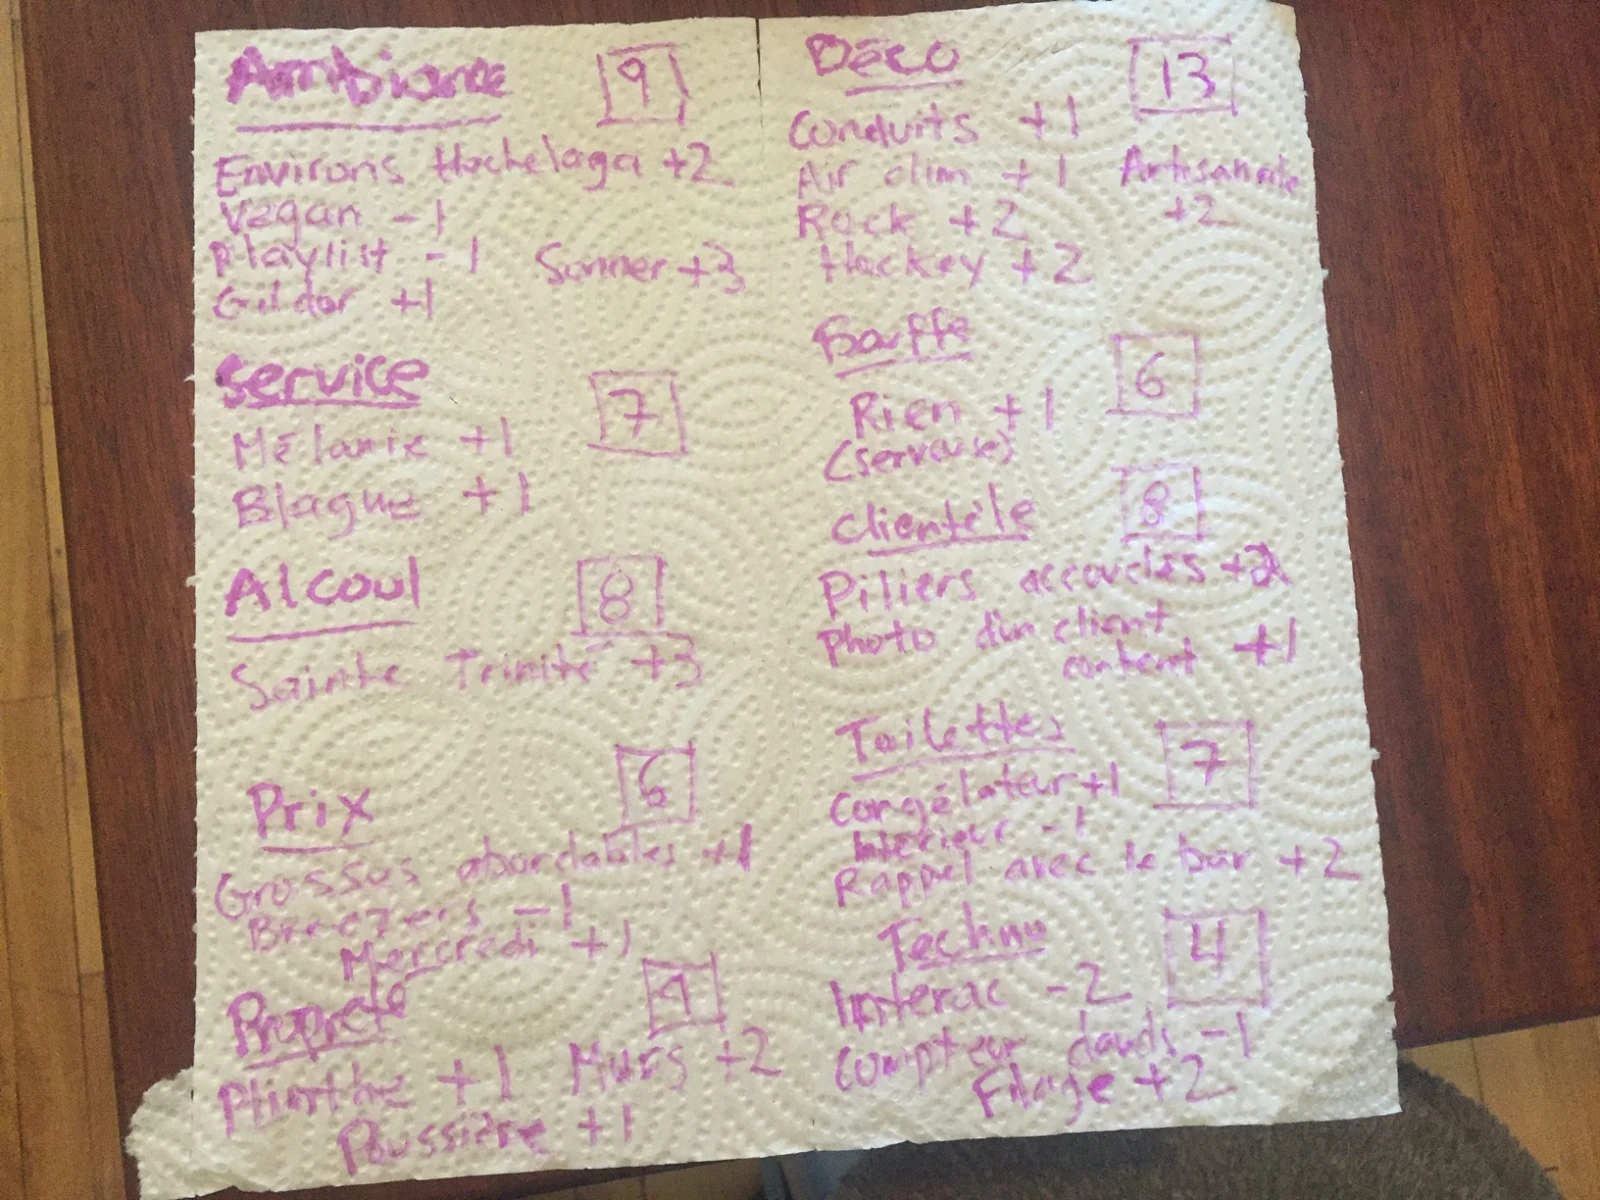 Ambiance 9
Environs Hochelaga +2
Vegan -1
Playlist -1 Sonner +3
Gildor +1
Service 7
Mélanie +1
Blague +1
Alcoul 8
Sainte Trinité +3
Prix 6
Grosses abordables +1
Breezers -1
Mercredi +1
Propreté 9
Plinthe +1 Murs +2
Poussière +1
Déco 13
Conduits +1
Air clim +1 Artisanale
+2
Rock +2
Hockey +2
Bouffe 6
Rien +1
(serveuse)
Clientèle 8
Piliers accoudés +2
Photo d'un client
content +1
Toilettes 7
Congélateur +1
Intérieur -1
Rappel avec le bar +2
Techno 4
Interac -2
Compteur -1
Filage +2